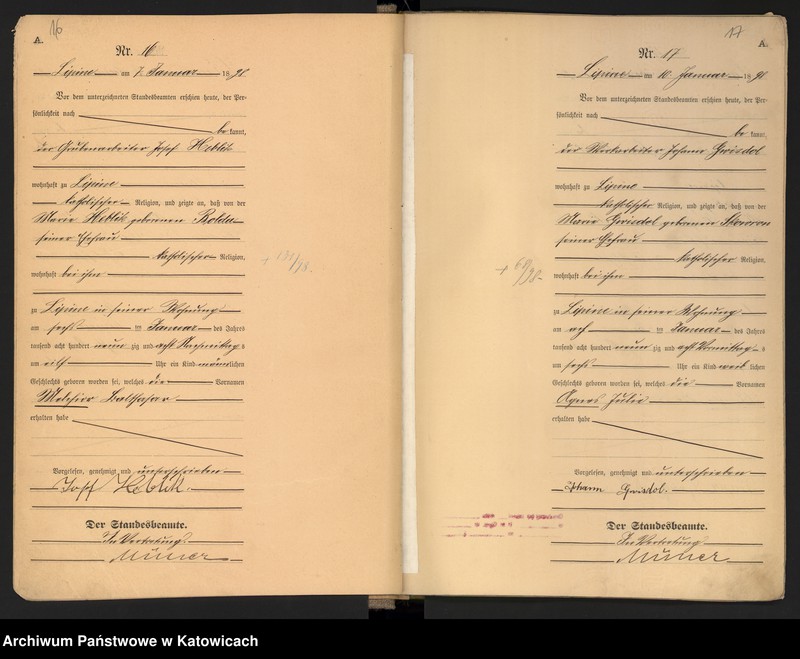 16
A.
Nr. 16
Lipine am 7. Januar 1898.
Vor dem unterzeichneten Standesbeamten erschien heute, der Per-
sönlichkeit nach
be kannt,
der Grubenarbeiter Josef Heblik
wohnhaft zu Lipine
katholischer Religion, und zeigte an, daß von der
Marie Heblik geborenen
seiner Ehefrau
katholischer Religion,
wohnhaft bei ihm
zu Lipine in seiner Wohnung
am sechsten Januar des Jahres
tausend acht hundert neun zig und acht Nachmittag s
um elf Uhr ein Kind männlichen
Geschlechts geboren worden sei, welches die Vornamen
Melchior Balthasar
erhalten habe
Vorgelesen, genehmigt und unterschrieben
Josef Heblik.
Der Standesbeamte.
In Vertretung.
+ 131/98.
17
A.
Nr. 17
Lipine am 10. Januar 1898.
Vor dem unterzeichneten Standesbeamten erschien heute, der Per-
sönlichkeit nach
be kannt,
der Johann Gwisdol
wohnhaft zu Lipine
katholischer Religion, und zeigte an, daß von der
Marie Gwisdol geborenen Skowron
seiner Ehefrau
katholischer Religion,
wohnhaft bei ihm
zu Lipine in seiner Wohnung
am Januar des Jahres
tausend acht hundert neun zig und acht Vormittag s
um sechs Uhr ein Kind weib lichen
Geschlechts geboren worden sei, welches die Vornamen
Agnes Julie
erhalten habe
Vorgelesen, genehmigt und unterschrieben
Johann Gwisdol.
Der Standesbeamte.
In Vertretung.
+ 68/98.
Archiwum Państwowe w Katowicach